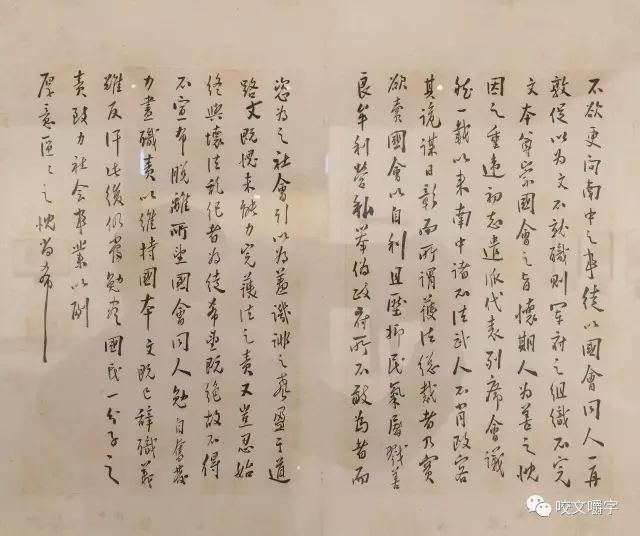 不欲更问南中之事徒以國會同人一再
敦促以為文不就職則軍府之組織不完
文本尊崇國會之旨懷期人為善之忱
因之重違初志遣派代表列席會議
然一載以來南中諸不法武人不肖政客
其詭謀日彰而所謂護法總裁者乃實
欲賣國會以自利且壓抑民氣屠戮善
良牟利營私舉偽政府所不敢為者而
恣為之社會引以為羞譏誹之聲盈于道
路文既愧未能力完護法之責又豈忍始
終與壞法亂紀者為徒希望既絕故不得
不宣布脫離所望國會同人勉自奮發
力盡職責以維持國本文既已辭職義
難反汗此後仍當勉盡國民一分子之
責致力社會事業以副
厚意區々之忱尚希
咬文嚼字